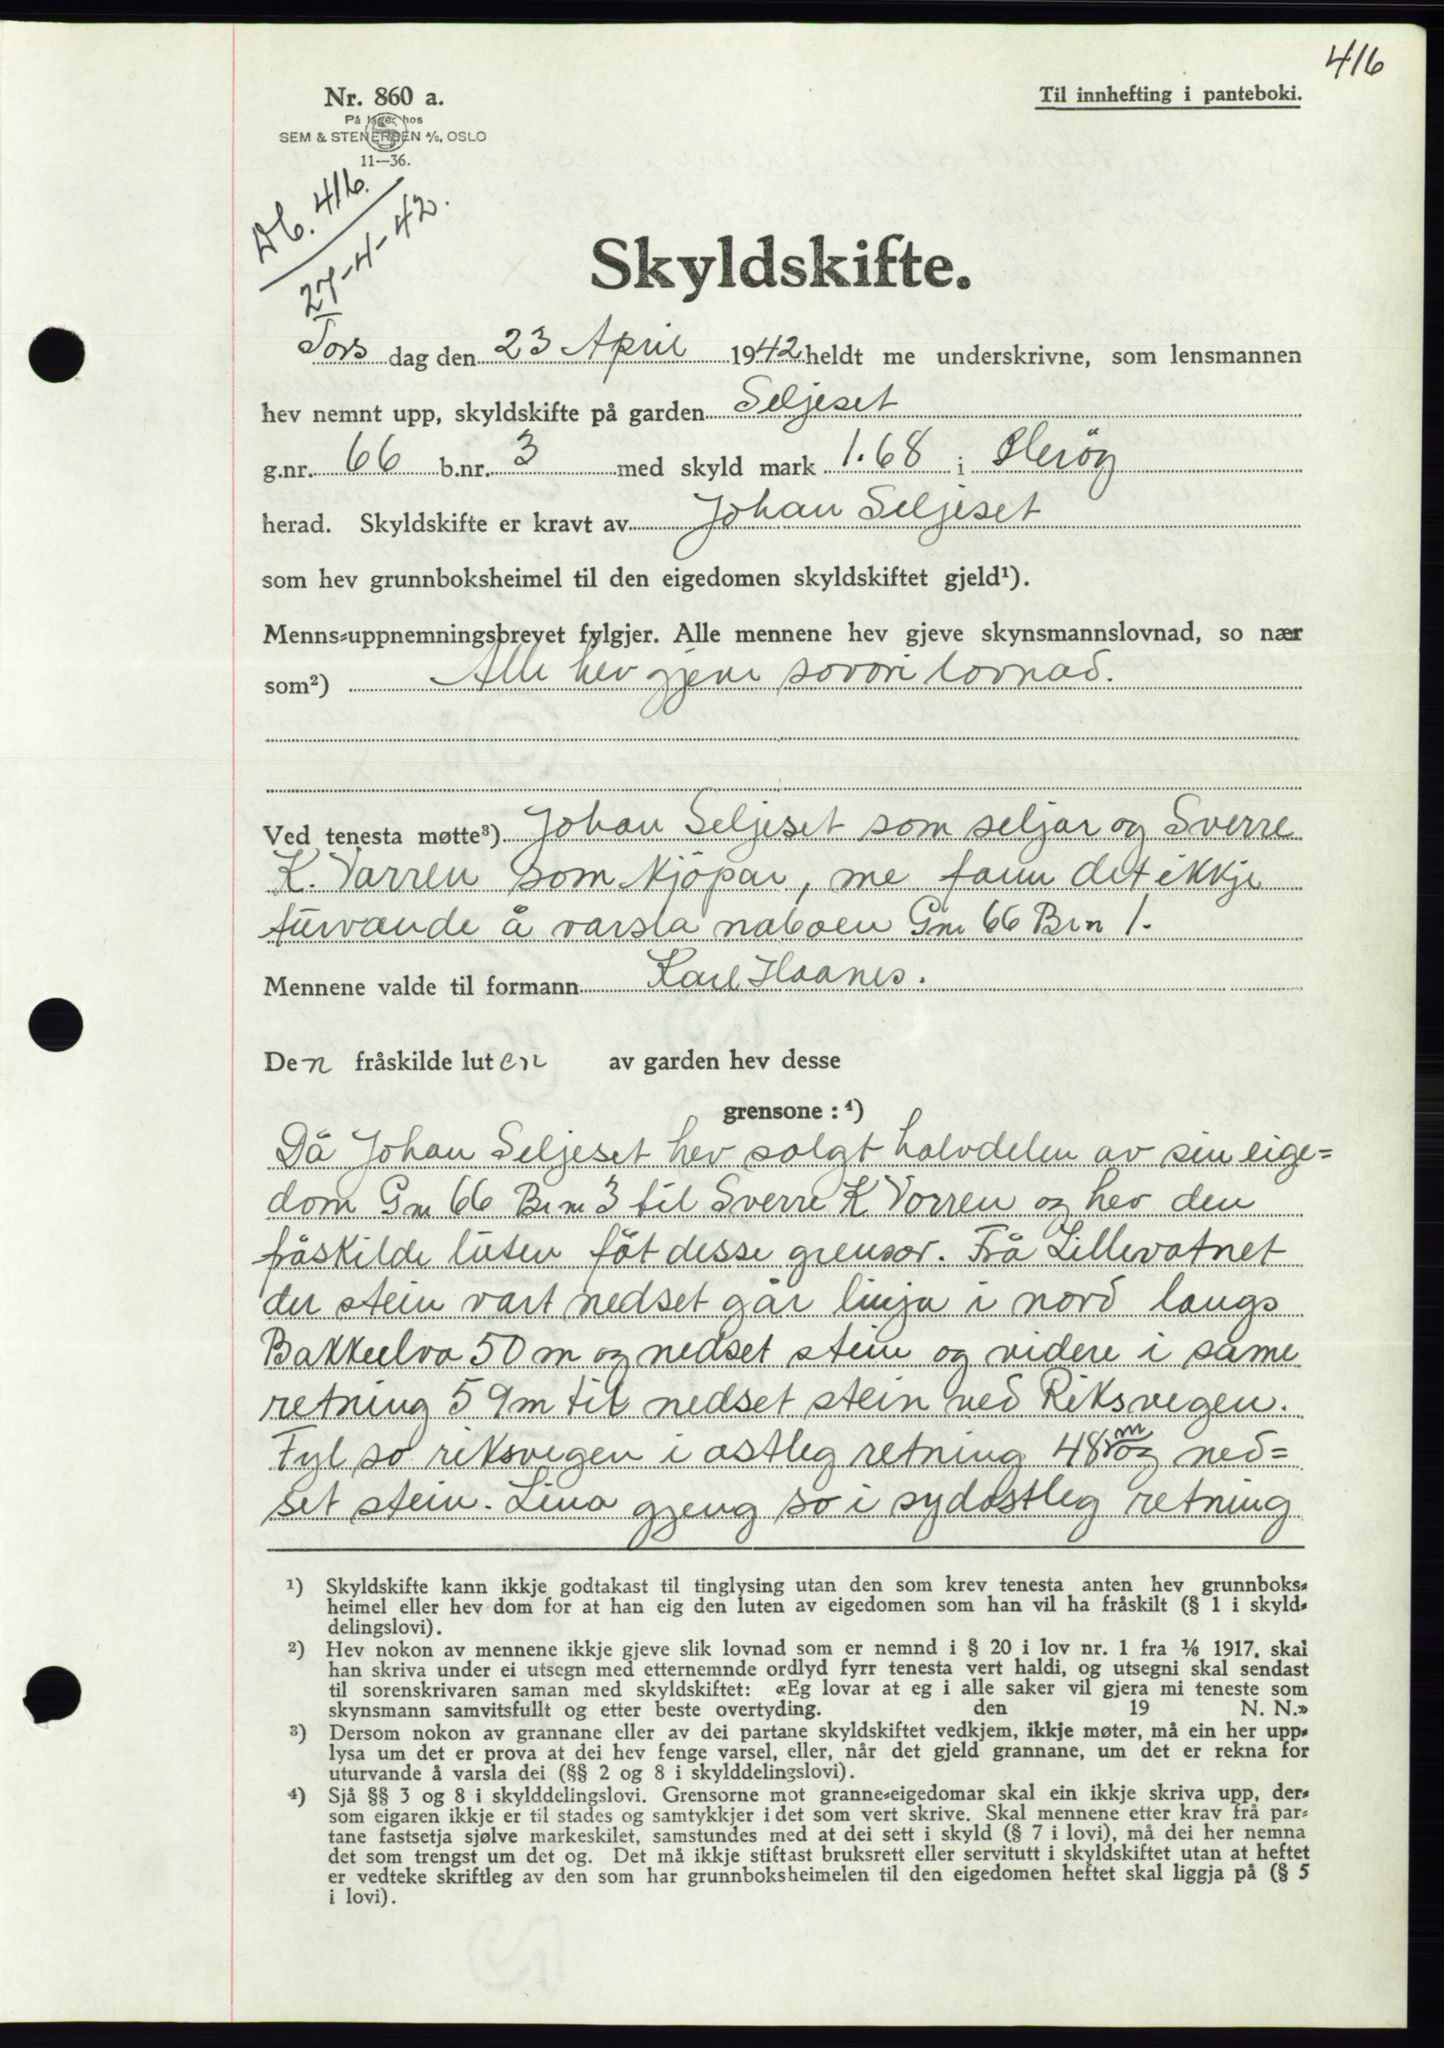 416
Nr. 860 a.
Til innhefting i panteboki.
På lager hos
SEM & STENERSEN A/S, OSLO
11—36.
Db. 416.
27-4-42.
Skyldskifte.
Tors dag den 23 April 1942 heldt me underskrivne, som lensmannen
hev nemnt upp, skyldskifte på garden Seljeset
g.nr. 66 b.nr. 3 med skyld mark 1.68 i Heröy
herad. Skyldskifte er kravt av Johan Seljeset
som hev grunnboksheimel til den eigedomen skyldskiftet gjeld¹).
Menns-uppnemningsbrevet fylgjer. Alle mennene hev gjeve skynsmannslovnad, so nær
som²) Alle hev gjeve sovori lovnad.
Ved tenesta møtte³) Johan Seljeset som seljar og Sverre
K. Vorren som kjöpar, me fann det ikkje
turvande å varsla naboen Gnr 66 Brn 1.
Mennene valde til formann Karl Haanes.
Den fråskilde luten av garden hev desse
grensone : ⁴)
Då Johan Seljeset hev solgt halvdelen av sin eige=
dom Gnr 66 Brnr 3 til Sverre K Vorren og hev den
fråskilde luten fåt desse grensor. Frå Lillevatnet
der stein vart nedset går linja i nord langs
Bakkeelva 50 m og nedset stein og videre i same
retning 59m til nedset stein ved Riksvegen.
Fyl so riksvegen i ostleg retning 48 m og ned=
set stein. Lina gjeng so i sydostleg retning
¹) Skyldskifte kann ikkje godtakast til tinglysing utan den som krev tenesta anten hev grunnboks-
heimel eller hev dom for at han eig den luten av eigedomen som han vil ha fråskilt (§ 1 i skyld-
delingslovi).
²) Hev nokon av mennene ikkje gjeve slik lovnad som er nemnd i § 20 i lov nr. 1 fra 1/6 1917, skal
han skriva under ei utsegn med etternemnde ordlyd fyrr tenesta vert haldi, og utsegni skal sendast
til sorenskrivaren saman med skyldskiftet: «Eg lovar at eg i alle saker vil gjera mi teneste som
skynsmann samvitsfullt og etter beste overtyding. den 19 N. N.»
³) Dersom nokon av grannane eller av dei partane skyldskiftet vedkjem, ikkje møter, må ein her upp-
lysa um det er prova at dei hev fenge varsel, eller, når det gjeld grannane, um det er rekna for
uturvande å varsla dei (§§ 2 og 8 i skylddelingslovi).
⁴) Sjå §§ 3 og 8 i skylddelingslovi. Grensorne mot granne-eigedomar skal ein ikkje skriva upp, der-
som eigaren ikkje er til stades og samtykkjer i det som vert skrive. Skal mennene etter krav frå par-
tane fastsetja sjølve markeskilet, samstundes med at dei sett i skyld (§ 7 i lovi), må dei her nemna
det som trengst um det og. Det må ikkje stiftast bruksrett eller servitutt i skyldskiftet utan at heftet
er vedteke skriftleg av den som har grunnboksheimelen til den eigedomen heftet skal liggja på (§ 5
i lovi).